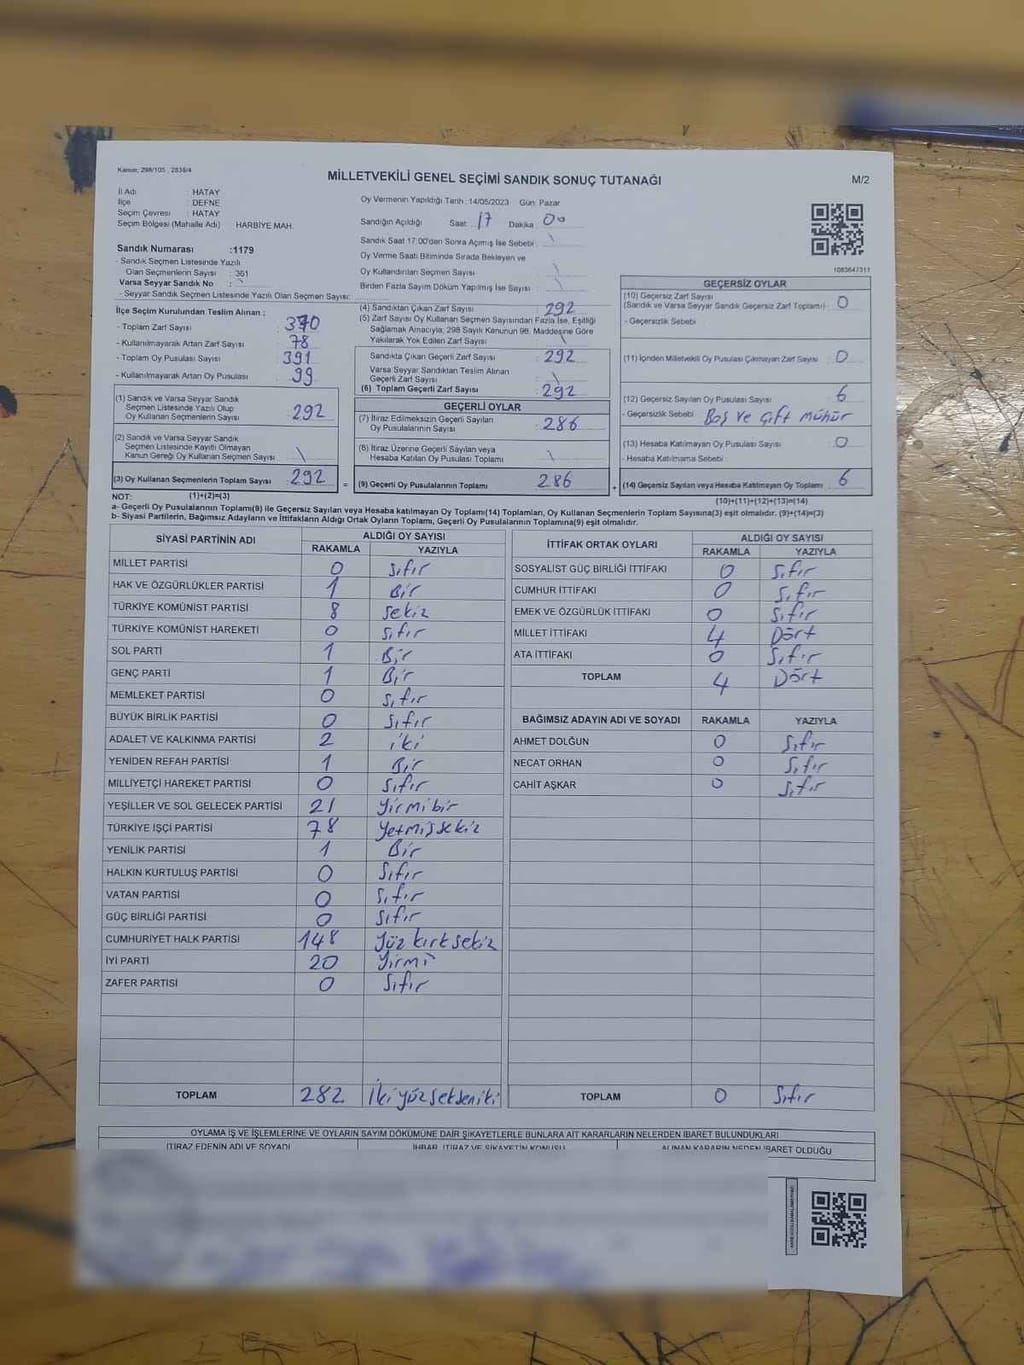 Kanun: 298/105 , 2839/4
MİLLETVEKİLİ GENEL SEÇİMİ SANDIK SONUÇ TUTANAĞI
M/2
İl Adı : HATAY
İlçe : DEFNE
Seçim Çevresi : HATAY
Seçim Bölgesi (Mahalle Adı) HARBİYE MAH.
Sandık Numarası :1179
- Sandık Seçmen Listesinde Yazılı
Olan Seçmenlerin Sayısı : 361
Varsa Seyyar Sandık No :
- Seyyar Sandık Seçmen Listesinde Yazılı Olan Seçmen Sayısı:
İlçe Seçim Kurulundan Teslim Alınan ;
- Toplam Zarf Sayısı : 370
- Kullanılmayarak Artan Zarf Sayısı : 78
- Toplam Oy Pusulası Sayısı : 391
- Kullanılmayarak Artan Oy Pusulası : 99
(1) Sandık ve Varsa Seyyar Sandık
Seçmen Listesinde Yazılı Olup
Oy Kullanan Seçmenlerin Sayısı : 292
(2) Sandık ve Varsa Seyyar Sandık
Seçmen Listesinde Kayıtlı Olmayan
Kanun Gereği Oy Kullanan Seçmen Sayısı : \
(3) Oy Kullanan Seçmenlerin Toplam Sayısı : 292
(1)+(2)=(3)
Oy Vermenin Yapıldığı Tarih :14/05/2023 Gün: Pazar
Sandığın Açıldığı Saat : 17 Dakika : 00
Sandık Saat 17:00'den Sonra Açılmış İse Sebebi : \
Oy Verme Saati Bitiminde Sırada Bekleyen ve
Oy Kullandırılan Seçmen Sayısı : \
Birden Fazla Sayım Döküm Yapılmış İse Sayısı : \
(4) Sandıktan Çıkan Zarf Sayısı : 292
(5) Zarf Sayısı Oy Kullanan Seçmen Sayısından Fazla İse, Eşitliği
Sağlamak Amacıyla, 298 Sayılı Kanunun 98. Maddesine Göre
Yakılarak Yok Edilen Zarf Sayısı : \
Sandıkta Çıkan Geçerli Zarf Sayısı : 292
Varsa Seyyar Sandıktan Teslim Alınan
Geçerli Zarf Sayısı : \
(6) Toplam Geçerli Zarf Sayısı : 292
GEÇERLİ OYLAR
(7) İtiraz Edilmeksizin Geçerli Sayılan
Oy Pusulalarının Sayısı : 286
(8) İtiraz Üzerine Geçerli Sayılan veya
Hesaba Katılan Oy Pusulası Toplamı : \
= (9) Geçerli Oy Pusulalarının Toplamı : 286
GEÇERSİZ OYLAR
(10) Geçersiz Zarf Sayısı
(Sandık ve Varsa Seyyar Sandık Geçersiz Zarf Toplamı) : 0
- Geçersizlik Sebebi :
(11) İçinden Milletvekili Oy Pusulası Çıkmayan Zarf Sayısı : 0
(12) Geçersiz Sayılan Oy Pusulası Sayısı : 6
- Geçersizlik Sebebi : Boş ve çift mühür
(13) Hesaba Katılmayan Oy Pusulası Sayısı : 0
- Hesaba Katılmama Sebebi :
+ (14) Geçersiz Sayılan veya Hesaba Katılmayan Oy Toplamı : 6
(10)+(11)+(12)+(13)=(14)
1083647311
NOT:
a- Geçerli Oy Pusulalarının Toplamı(9) ile Geçersiz Sayılan veya Hesaba katılmayan Oy Toplamı(14) Toplamları, Oy Kullanan Seçmenlerin Toplam Sayısına(3) eşit olmalıdır. (9)+(14)=(3)
b- Siyasi Partilerin, Bağımsız Adayların ve İttifakların Aldığı Ortak Oyların Toplamı, Geçerli Oy Pusulalarının Toplamına(9) eşit olmalıdır.
SİYASİ PARTİNİN ADI ALDIĞI OY SAYISI
RAKAMLA YAZIYLA
MİLLET PARTİSİ 0 Sıfır
HAK VE ÖZGÜRLÜKLER PARTİSİ 1 Bir
TÜRKİYE KOMÜNİST PARTİSİ 8 sekiz
TÜRKİYE KOMÜNİST HAREKETİ 0 Sıfır
SOL PARTİ 1 Bir
GENÇ PARTİ 1 Bir
MEMLEKET PARTİSİ 0 Sıfır
BÜYÜK BİRLİK PARTİSİ 0 Sıfır
ADALET VE KALKINMA PARTİSİ 2 iki
YENİDEN REFAH PARTİSİ 1 Bir
MİLLİYETÇİ HAREKET PARTİSİ 0 Sıfır
YEŞİLLER VE SOL GELECEK PARTİSİ 21 Yirmibir
TÜRKİYE İŞÇİ PARTİSİ 78 Yetmişsekiz
YENİLİK PARTİSİ 1 Bir
HALKIN KURTULUŞ PARTİSİ 0 Sıfır
VATAN PARTİSİ 0 Sıfır
GÜÇ BİRLİĞİ PARTİSİ 0 Sıfır
CUMHURİYET HALK PARTİSİ 148 Yüz kırksekiz
İYİ PARTİ 20 Yirmi
ZAFER PARTİSİ 0 Sıfır
TOPLAM 282 İkiyüzsekseniki
İTTİFAK ORTAK OYLARI ALDIĞI OY SAYISI
RAKAMLA YAZIYLA
SOSYALİST GÜÇ BİRLİĞİ İTTİFAKI 0 Sıfır
CUMHUR İTTİFAKI 0 Sıfır
EMEK VE ÖZGÜRLÜK İTTİFAKI 0 Sıfır
MİLLET İTTİFAKI 4 Dört
ATA İTTİFAKI 0 Sıfır
TOPLAM 4 Dört
BAĞIMSIZ ADAYIN ADI VE SOYADI RAKAMLA YAZIYLA
AHMET DOLĞUN 0 Sıfır
NECAT ORHAN 0 Sıfır
CAHİT AŞKAR 0 Sıfır
TOPLAM 0 Sıfır
OYLAMA İŞ VE İŞLEMLERİNE VE OYLARIN SAYIM DÖKÜMÜNE DAİR ŞİKAYETLERLE BUNLARA AİT KARARLARIN NELERDEN İBARET BULUNDUKLARI
İTİRAZ EDENİN ADI VE SOYADI İHBAR, İTİRAZ VE ŞİKAYETİN KONUSU ALINAN KARARIN NEDEN İBARET OLDUĞU